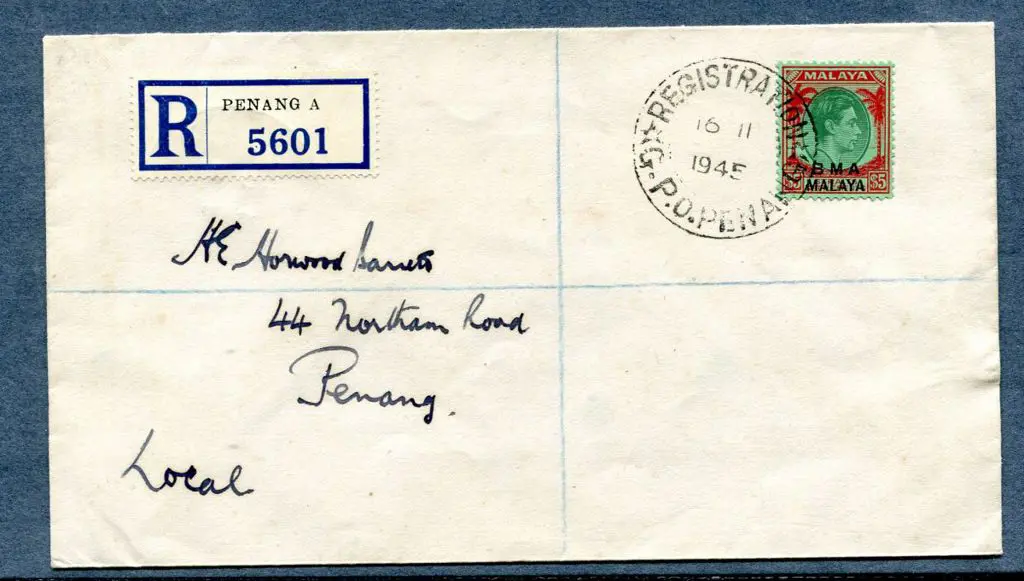 R
PENANG A
5601
REGISTRATION
16 11
1945
G.P.O. PENANG
MALAYA
BMA
MALAYA
$5
HE Horwood Barrett
44 Northam Road
Penang.
Local